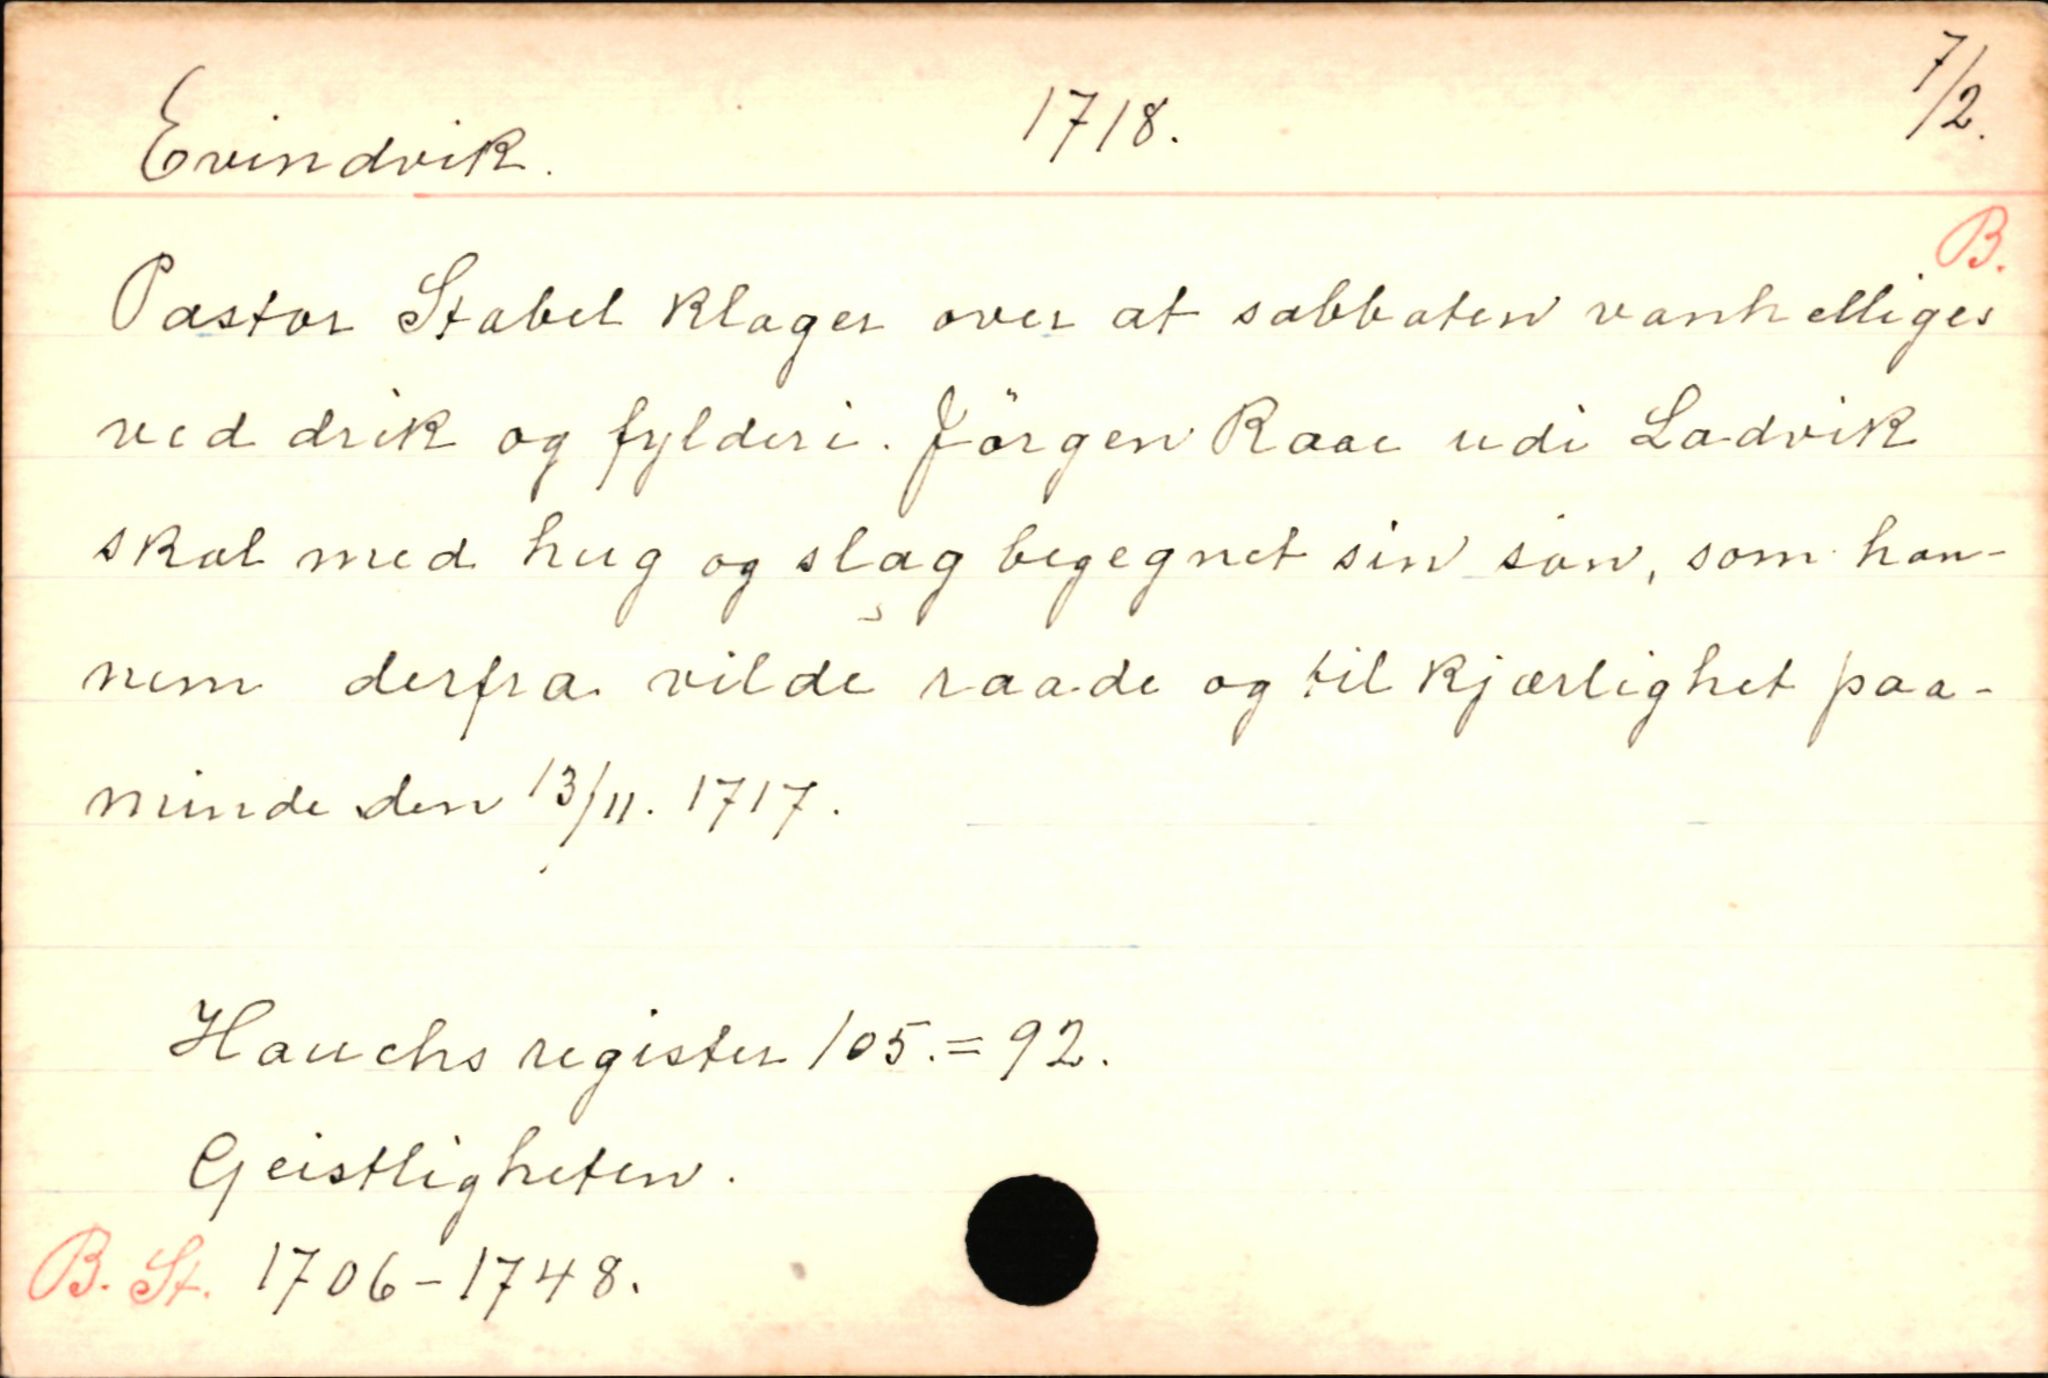 Evindvik. 1718. 7/2.
B.
Pastor Stabel klager over at sabbaten vanhelliges
ved drik og fylderi. Jörgen Raae udi Ladvik
skal med hug og slag begegnet sin sön, som han-
nem derfra vilde raade og til kjærlighet paa-
minde den 13/11. 1717.
Hauchs register 105.=92.
Geistligheten.
B. St. 1706-1748.